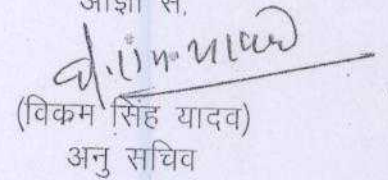 आज्ञा से,
(विकम सिंह यादव)
अनु सचिव